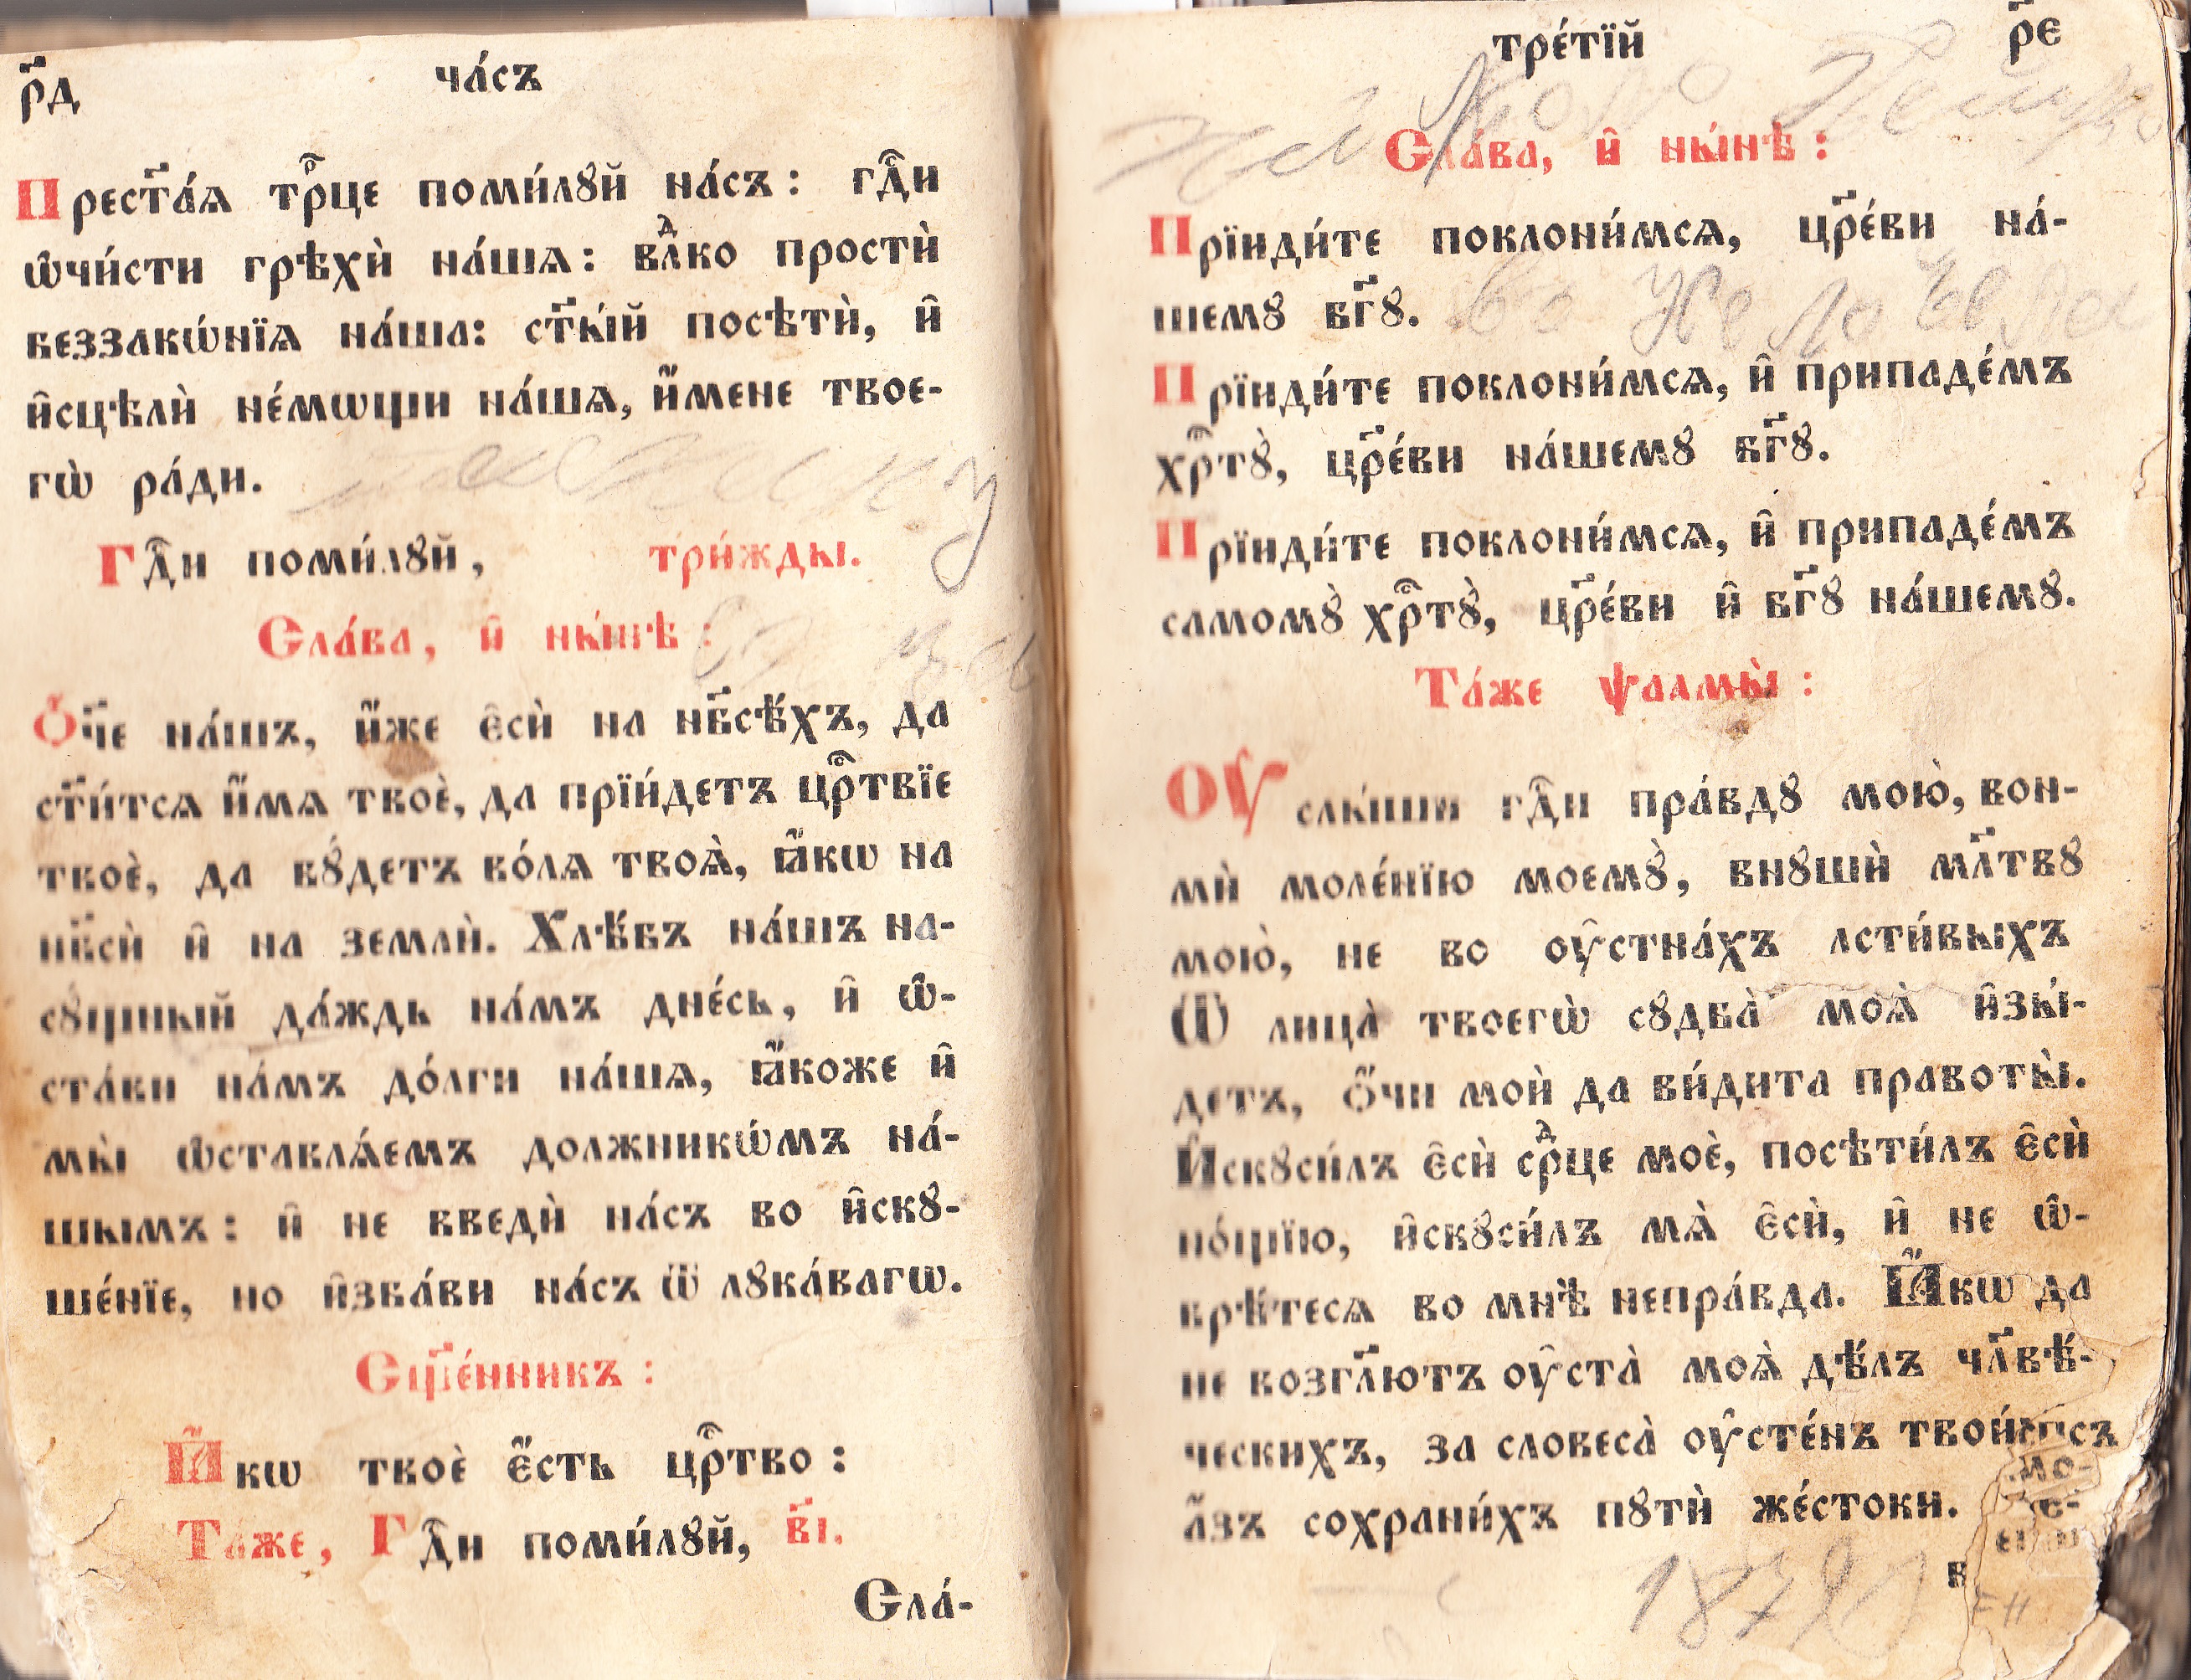 р҃д
ча́съ
Прест҃а́ѧ трⷪ҇це поми́лꙋй на́съ: гдⷭ҇и
ѡ҆чи́сти грѣхѝ на́шѧ: влⷣко простѝ
беззакѡ́нїѧ на́ша: ст҃ы́й посѣтѝ, и҆
и҆сцѣлѝ не́мѡщи на́шѧ, и҆́мене твоє-
гѡ̀ ра́ди.
Гдⷭ҇и поми́лꙋй, три́жды.
Сла́ва, и҆ ны́нѣ:
Ѻ҆́ч҃е на́шъ, и҆́же є҆сѝ на нб҃сѣ́хъ, да
ст҃и́тсѧ и҆́мѧ твоѐ, да прїи́детъ црⷭ҇твїе
твоѐ, да бꙋ́детъ во́лѧ твоѧ̀, ꙗ҆́кѡ на
нб҃сѝ и҆ на землѝ. Хлѣ́бъ на́шъ на-
сꙋ́щный да́ждь на́мъ дне́сь, и҆ ѡ҆-
ста́ви на́мъ до́лги на́шѧ, ꙗ҆́коже и҆
мы̀ ѡ҆ставлѧ́емъ должникѡ́мъ на́-
шымъ: и҆ не введѝ на́съ во и҆скꙋ-
ше́нїе, но и҆зба́ви на́съ ѿ лꙋка́вагѡ.
Сщ҃е́нникъ:
Ꙗ҆́кѡ твоѐ є҆́сть црⷭ҇тво:
Та́же, Гдⷭ҇и поми́лꙋй, в҃і.
Сла́-
тре́тїй
р҃е
Сла́ва, и҆ ны́нѣ:
Прїиди́те поклони́мсѧ, цр҃е́ви на́-
шемꙋ бг҃ꙋ.
Прїиди́те поклони́мсѧ, и҆ припаде́мъ
хрⷭ҇тꙋ̀, цр҃е́ви на́шемꙋ бг҃ꙋ.
Прїиди́те поклони́мсѧ, и҆ припаде́мъ
самомꙋ̀ хрⷭ҇тꙋ̀, цр҃е́ви и҆ бг҃ꙋ на́шемꙋ.
Та́же ѱалмы̀:
Оуслы́ши гдⷭ҇и пра́вдꙋ мою̀, вон-
мѝ моле́нїю моемꙋ̀, внꙋшѝ мл҃твꙋ
мою̀, не во оу҆стна́хъ лсти́выхъ
Ѿ лица̀ твоегѡ̀ сꙋдба̀ моѧ̀ и҆зы́-
детъ, ѻ҆́чи моѝ да ви́дита правоты̀.
И҆скꙋси́лъ є҆сѝ срⷣце моѐ, посѣти́лъ є҆сѝ
но́щїю, и҆скꙋси́лъ мѧ̀ є҆сѝ, и҆ не ѡ҆-
брѣ́тесѧ во мнѣ̀ непра́вда. Ꙗ҆́кѡ да
не возгл҃ютъ оу҆ста̀ моѧ̀ дѣ́лъ чл҃вѣ́-
ческихъ, за словеса̀ оу҆сте́нъ твои́хъ
а҆́зъ сохрани́хъ пꙋтѝ же́стоки.